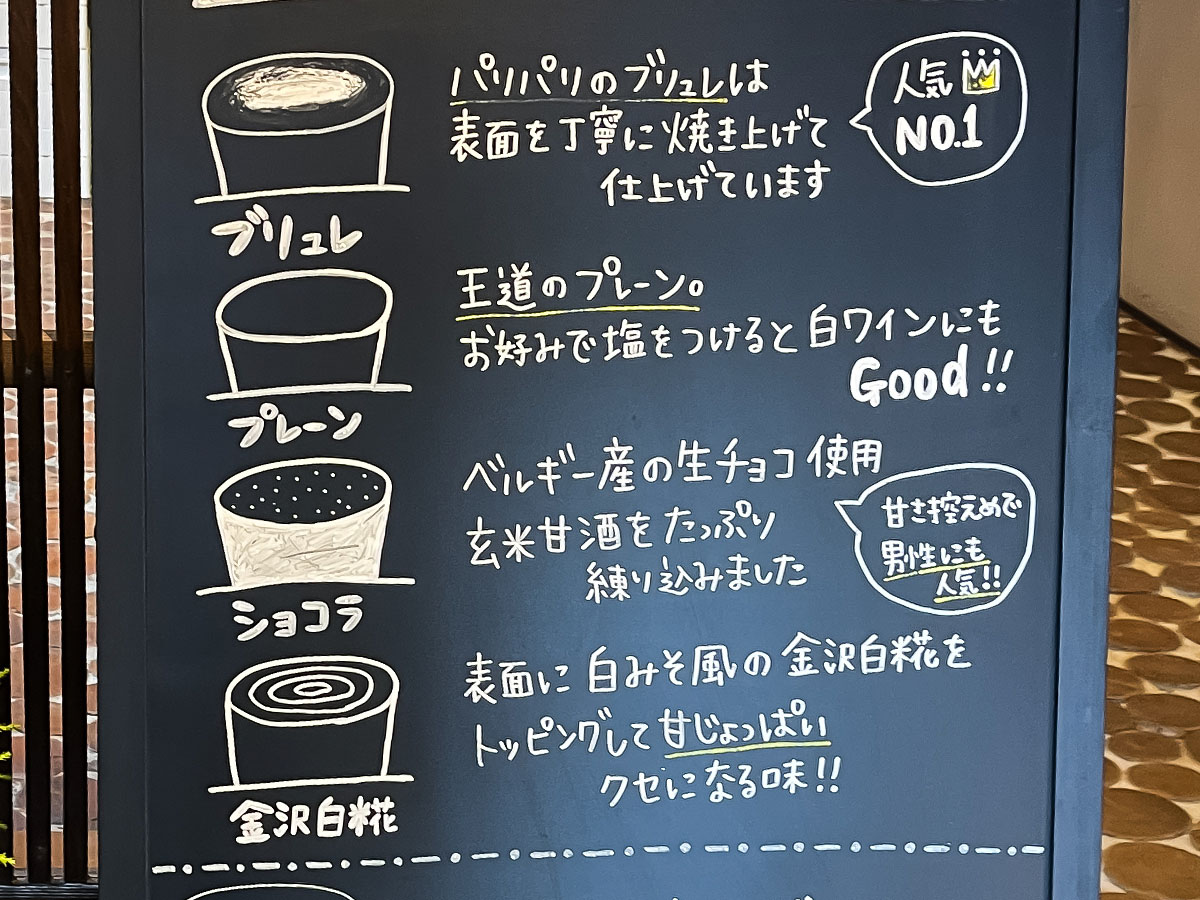 パリパリのブリュレは
表面を丁寧に焼き上げて
仕上げています
人気
NO.1
ブリュレ
王道のプレーン。
お好みで塩をつけると白ワインにも
Good!!
プレーン
ベルギー産の生チョコ使用
玄米甘酒をたっぷり
練り込みました
甘さ控えめで
男性にも
人気!!
ショコラ
表面に白みそ風の金沢白糀を
トッピングして甘じょっぱい
クセになる味!!
金沢白糀